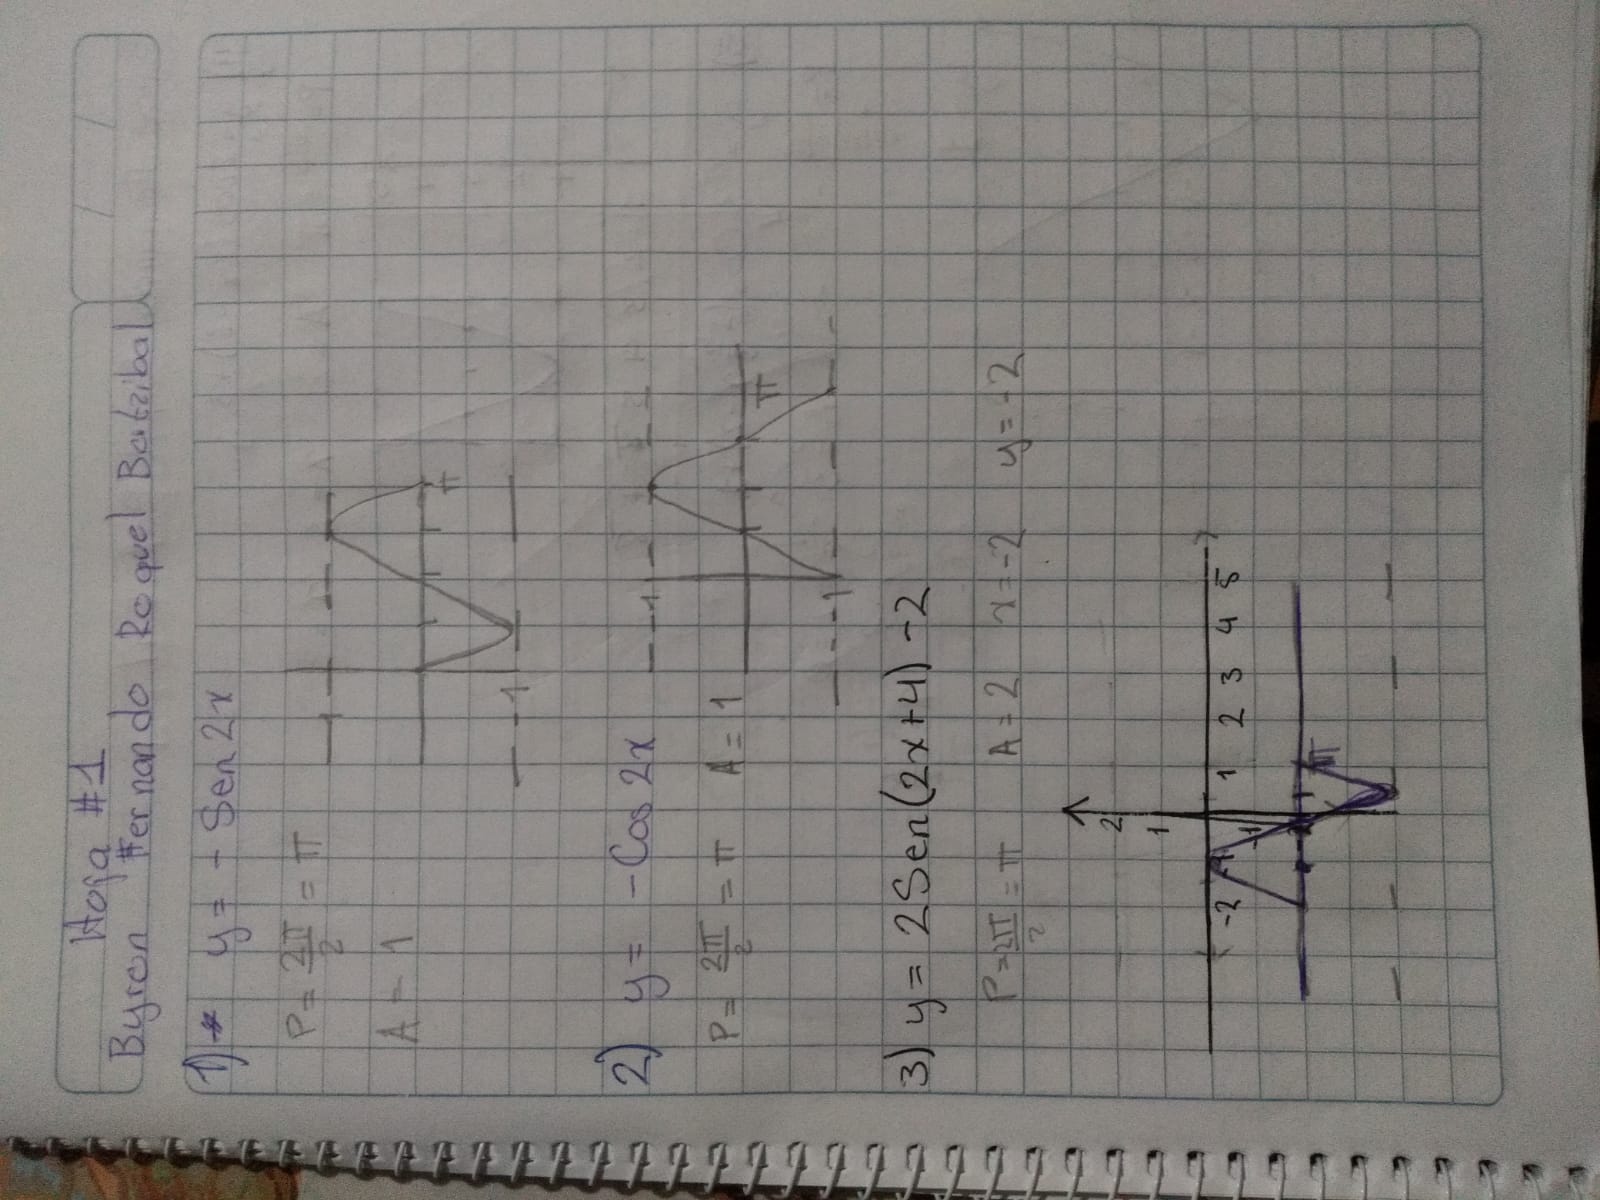 Hoja #1
Byron Fernando Roquel Batzibal
1) y = - Sen 2x
P = 2π/2 = π
A = 1
1
π
-1
2) y = -Cos 2x
P = 2π/2 = π A = 1
1
π
-1
3) y = 2Sen(2x+4) -2
P = 2π/2 = π A = 2 x = -2 y = -2
2
1
-2 1 2 3 4 5
-1
π